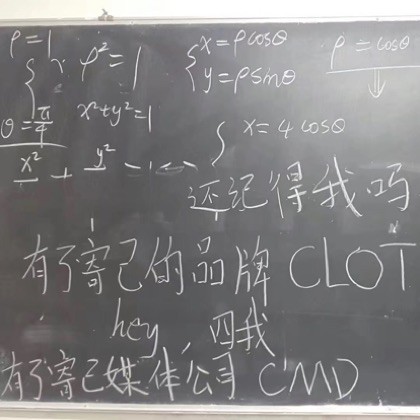 ρ=1
ρ²=1
{x=ρcosθ
y=ρsinθ
ρ=cosθ
⇓
θ=π/4
x²+y²=1
{x=4cosθ
x² + y²
还记得我吗
有了寄己的品牌 CLOT
hey，四我
有了寄己媒体公司 CMD